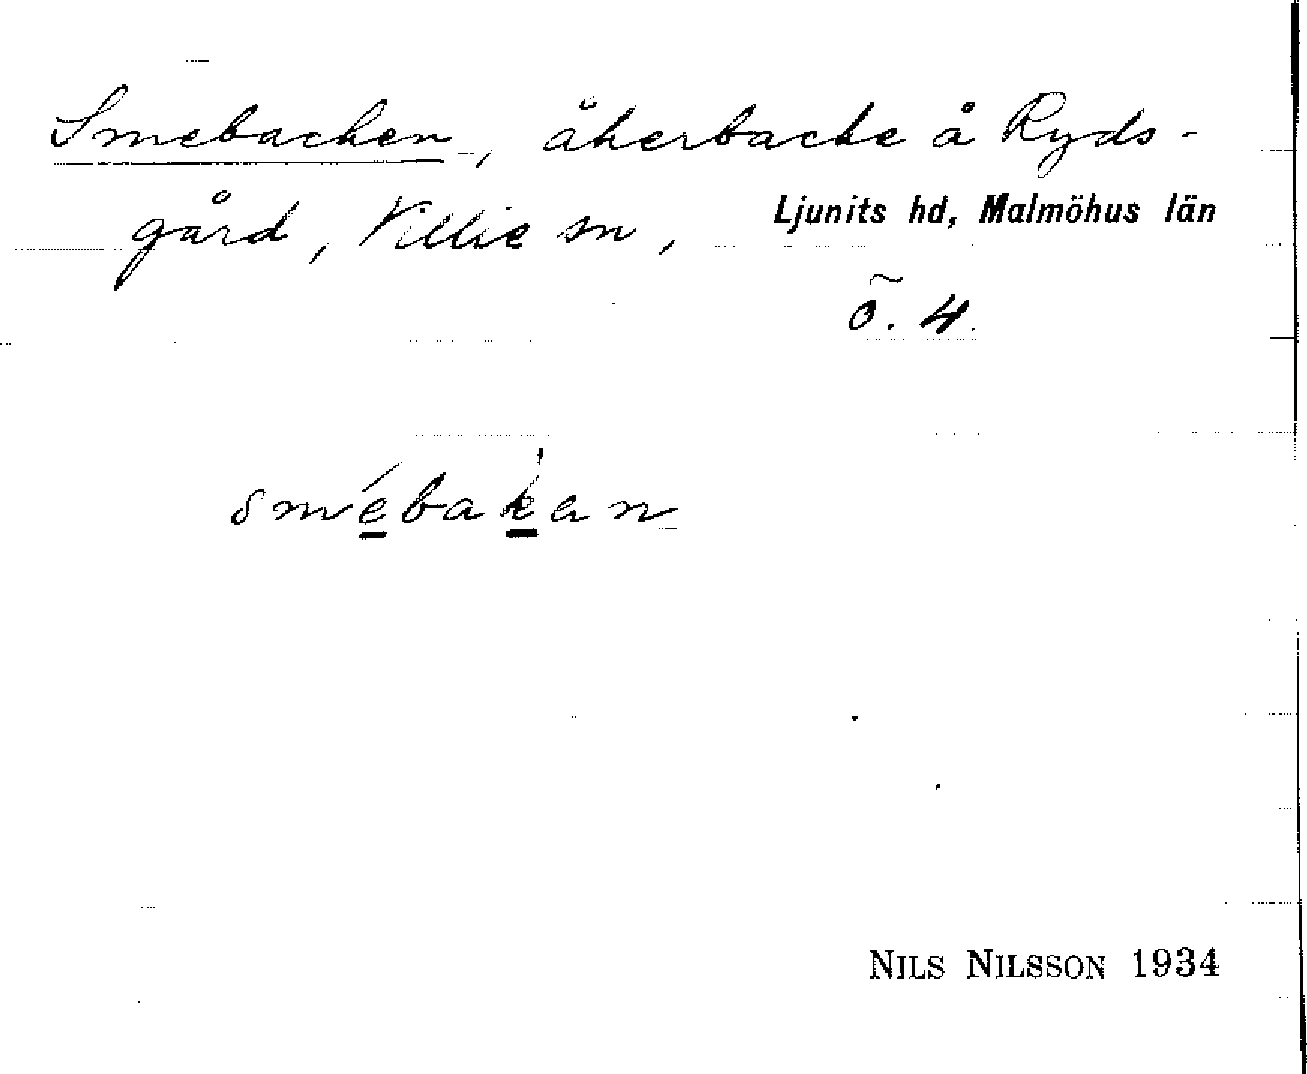 Smebacken, åkerbacke å Ryds-
gård, Villie sn, Ljunits hd, Malmöhus län
õ. 4.
smébakan
NILS NILSSON 1934